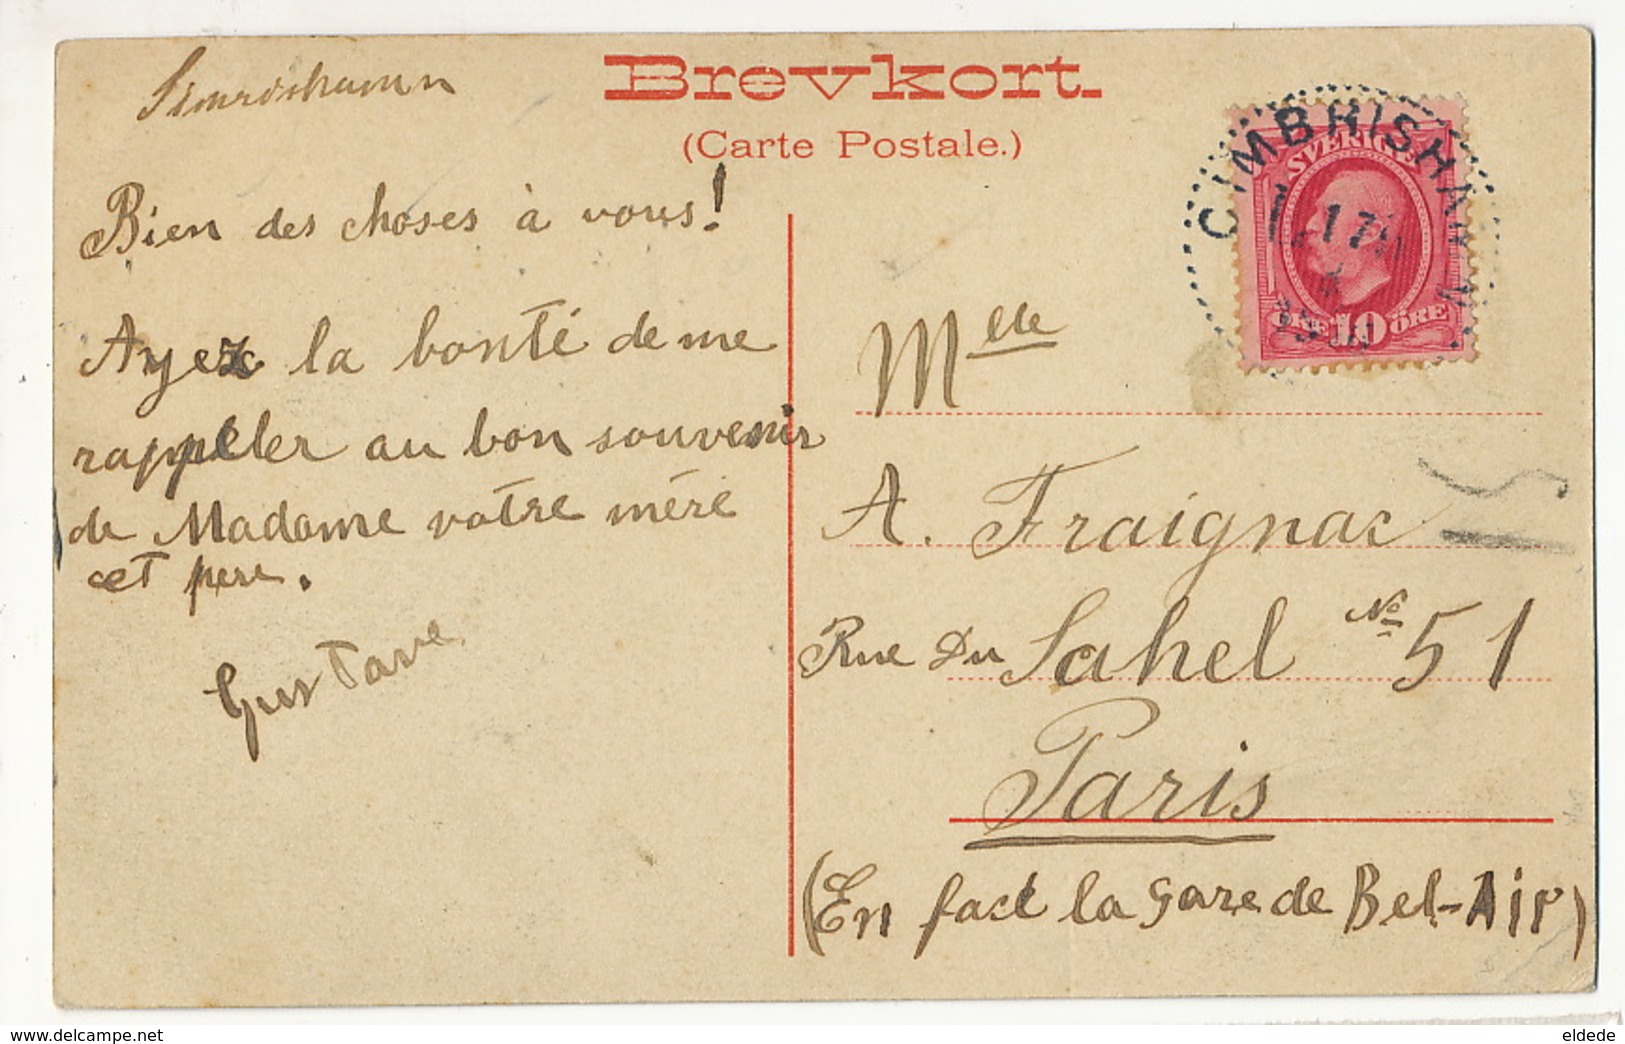 Simrishamn
Brevkort.
(Carte Postale.)
Bien des choses à vous!
Ayez la bonté de me
rappeler au bon souvenir
de Madame votre mére
et pere.
Gustave
CIMBRISHAMN
SVERIGE
ÖRE 10 ÖRE
Mlle
A. Fraignac
Rue Du Sahel No 51
Paris
(En face la Gare de Bel-Air)
eldede